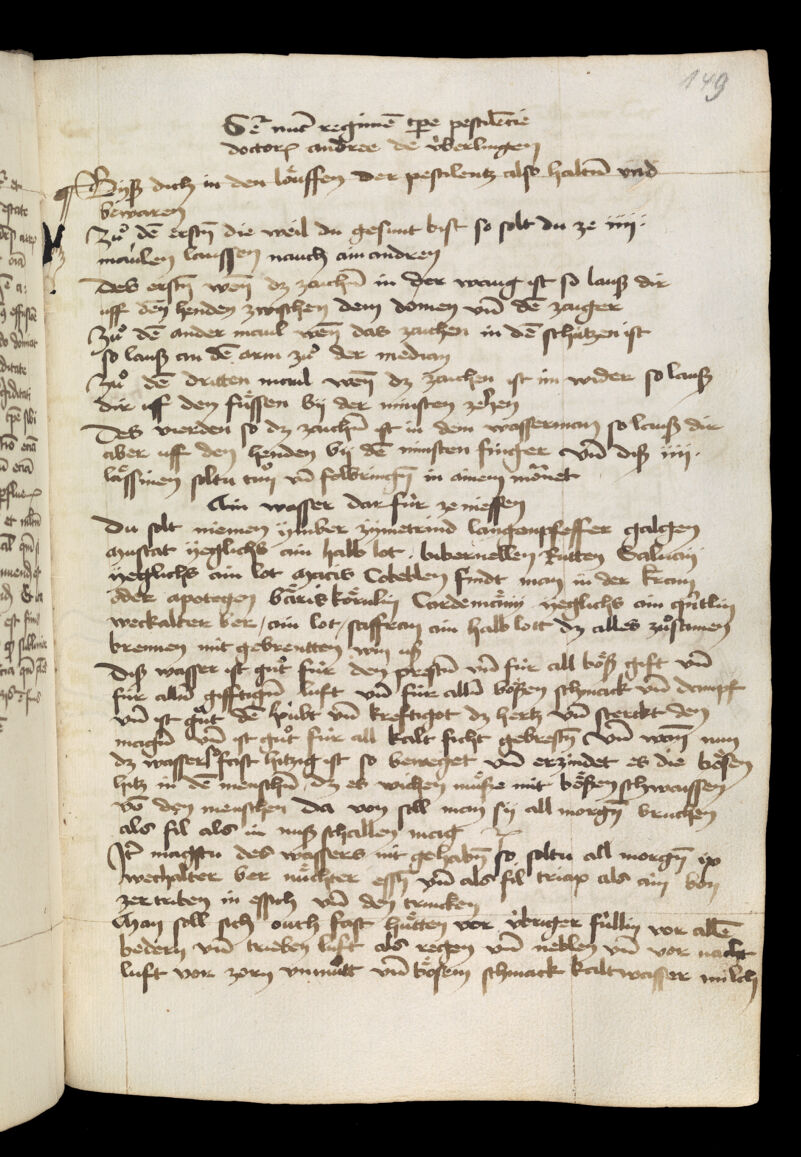 149
regimē tpe pestilēcie
doctor andree de v̈berlingen
dich in den löuffen der pestilentz also haltn̄ vnd
bewaren
Zuͦ dē erstn̄ die weil du gesunt bist so solt du ze iiii.
maulen laussen nauch ain andren
Des erstn̄ wen̄ dz zaichn̄ in der waug ist so lauß dir
uff den henden zwischen dem domen vn̄ dē zaiger
Zuͦ dē ander maul wen̄ das zaichen in dē schützen ist
so lauß an dē arm zuͦ der median
Zuͦ dē dritten maul wen̄ dz zaichen ist im wider so lauß
dir uff den füssen bij der minsten zehen
Des vierden so dz zaichn̄ ist in dem wasserman so lauß dir
aber uff den henden bij dē minsten finger vn̄ diß iiii.
lässinen soltu tuͦn vn̄ folbringn̄ in ainem monet
Ain wasser dar für ze niessen
Du solt niemen ymber zymetrind langenpfeffer galgen
muscat yegklichs ain halb lot . bibernellen Rutten Saluain
yegklichs ain lot macis Cobeblen findt man in der kram
oder apotegen bäris körnlin Cardemämij yegklichs ain quitlin
weckalter ber / ain lot / saffran ain halb lott dz alles zuͦsamen
brennen mit gebrentten win uß
Diß wasser ist guͦt für den prestn̄ vn̄ für all böß gift vn̄
für alln̄ gifftign̄ luft vn̄ für alln̄ bößen schmack vn̄ dampf
vn̄ ist guͦt dē hübt vn̄ kreftigot dz hertz vn̄ sterckt den
magn̄ vn̄ ist guͦt für all kalt sicht gebrestn̄ vn̄ wan̄ nun
dz wasser fast hitzig ist so beweget vn̄ erzindet es die bößen
hitz in dē menschn̄ / dz es wichen muͦße mit bößen schwaissen
vō den menschen da von soll man sij all morgn̄ bruchen
als fil als in nuß schallen mag
Itē machstu des wassers nit gehabn̄ so soltu all morgn̄ ix
wechalter ber nüchter essn̄ vn̄ als fil triax als ain bon
zertriben in essich vn̄ den trincken
Man soll sich ouch fast hütten vor v̈briger füllin vor allē
bedern vn̄ trieben luft als regen vn̄ neblen vn̄ vor nacht
luft vor zorn vnmuͦtt vn̄ bösem schmack kalt wasser milch